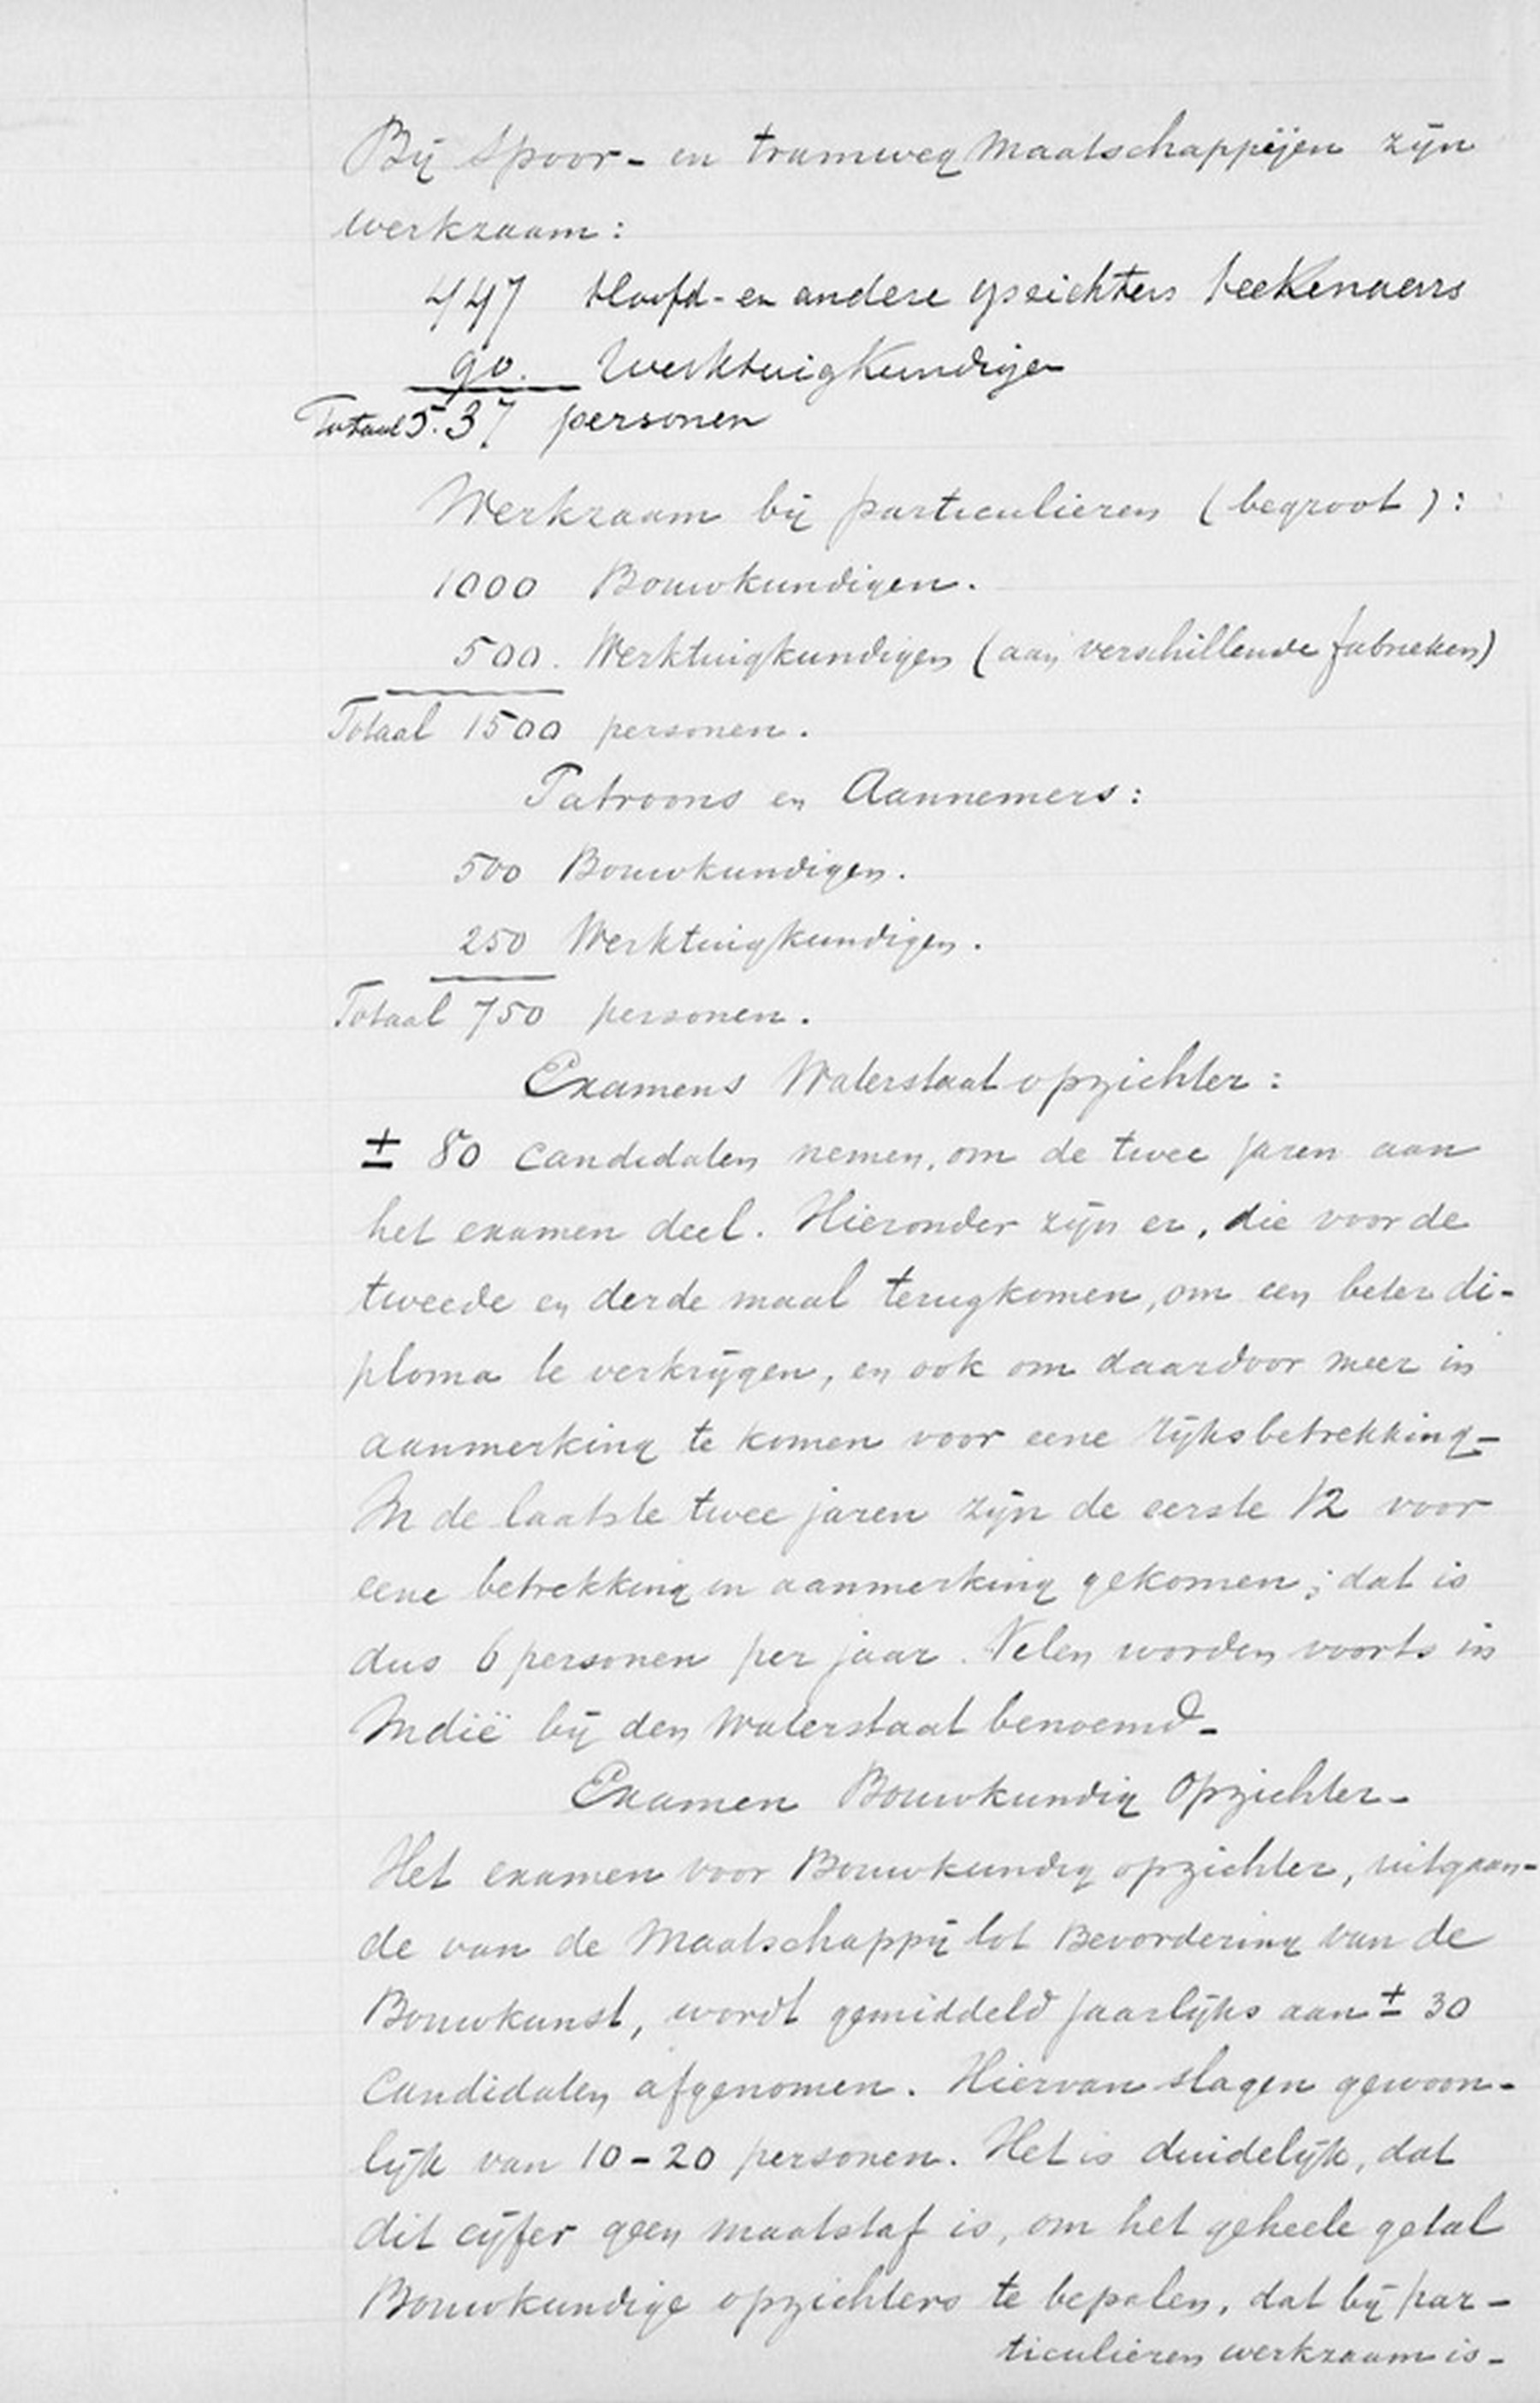 Bij Spoor- en tramweg Maatschappijen zijn
werkzaam:
447 Hoofd- en andere opzichters teekenaars
90. Werktuigkundigen
Totaal 537 personen
Werkzaam bij particulieren (begroot):
1000 Bouwkundigen.
500. Werktuigkundigen (aan verschillende fabrieken)
Totaal 1500 personen.
Patroons en Aannemers:
500 Bouwkundigen.
250 Werktuigkundigen.
Totaal 750 personen.
Examens Waterstaat opzichter:
± 80 candidaten nemen, om de twee jaren aan
het examen deel. Hieronder zijn er, die voor de
tweede en derde maal terugkomen, om een beter di-
ploma te verkrijgen, en ook om daardoor meer in
aanmerking te komen voor eene Rijksbetrekking-
In de laatste twee jaren zijn de eerste 12 voor
eene betrekking in aanmerking gekomen; dat is
dus 6 personen per jaar. Velen worden voorts in
Indië bij den Waterstaat benoemd-
Examen Bouwkundig Opzichter-
Het examen voor Bouwkundig opzichter, uitgaan-
de van de Maatschappij tot Bevordering van de
Bouwkunst, wordt gemiddeld jaarlijks aan ± 30
Candidaten afgenomen. Hiervan slagen gewoon-
lijk van 10-20 personen. Het is duidelijk, dat
dit cijfer geen maatstaf is, om het geheele getal
Bouwkundige opzichters te bepalen, dat bij par-
ticulieren werkzaam is-